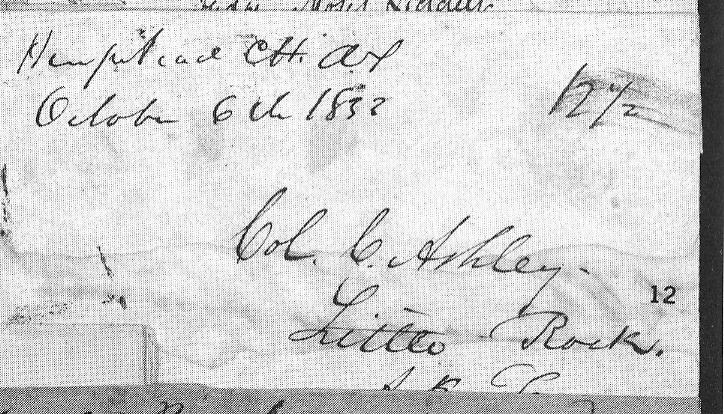 Hempstead CH. AT
October 6th 1832
12½
Col. C. Ashley.
12
Little Rock.